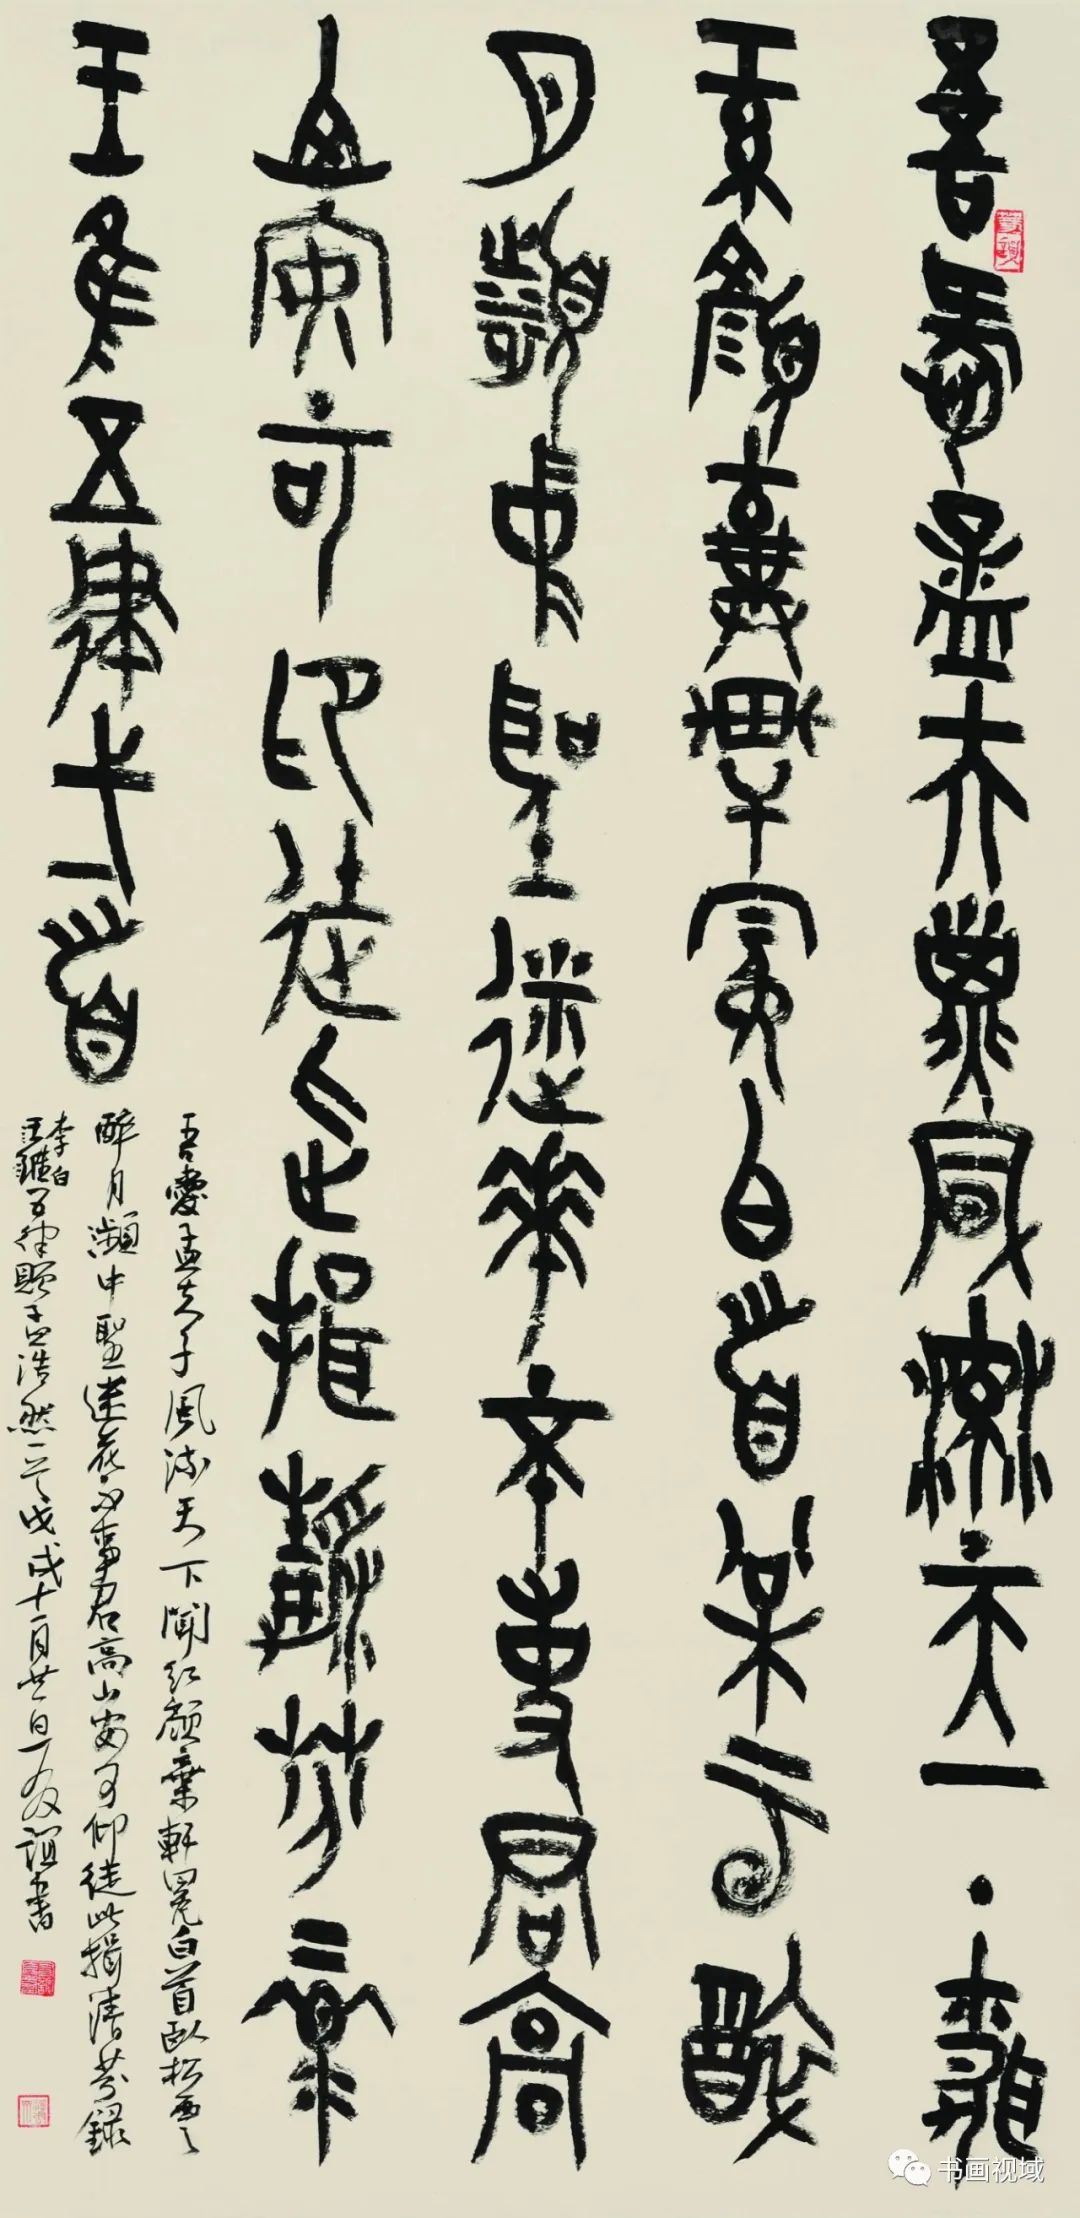 吾愛孟夫子風流天下聞
紅顏棄軒冕白首松雲醉
月頻中聖迷花不事君高
山安可仰徒此揖清芬錄
王隹五律弌首
吾愛孟夫子風流天下聞紅顏棄軒冕白首臥松雲
醉月瀕中聖迷花不事君高山安可仰徒此揖清芬錄
李白
王維五律贈孟浩然一首戊戌十一月廿一日友誼書
书画视域